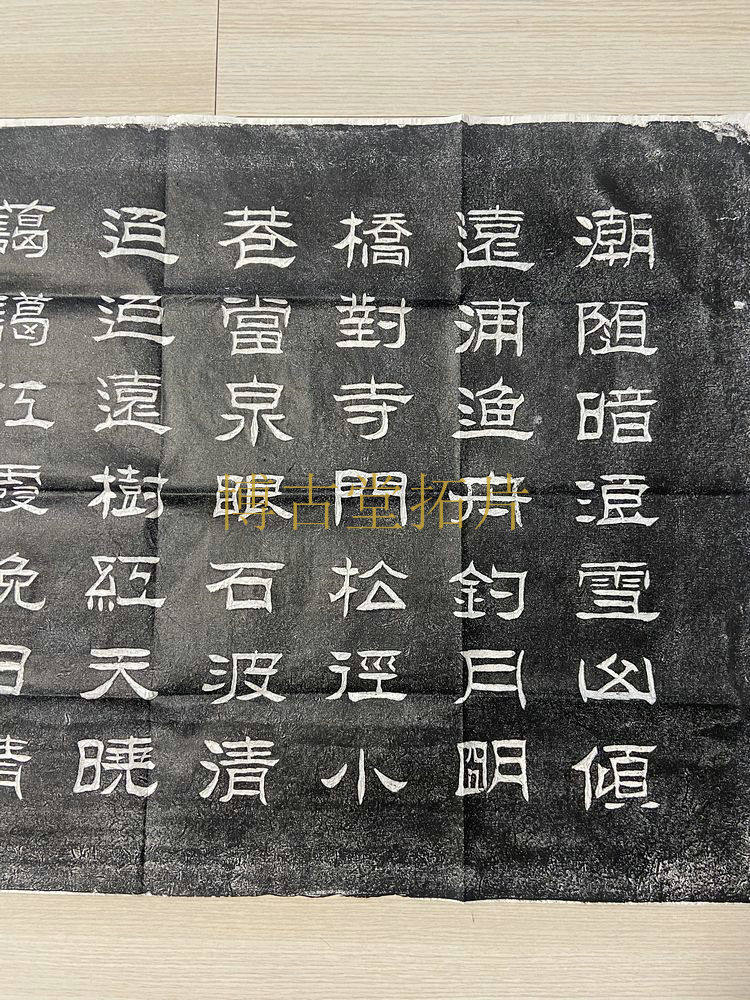 潮隨暗浪雪山傾
遠浦漁舟釣月朙
橋對寺門松徑小
巷當泉眼石波清
迢迢遠樹紅天曉
藹藹江霞晚日晴
博古堂拓片